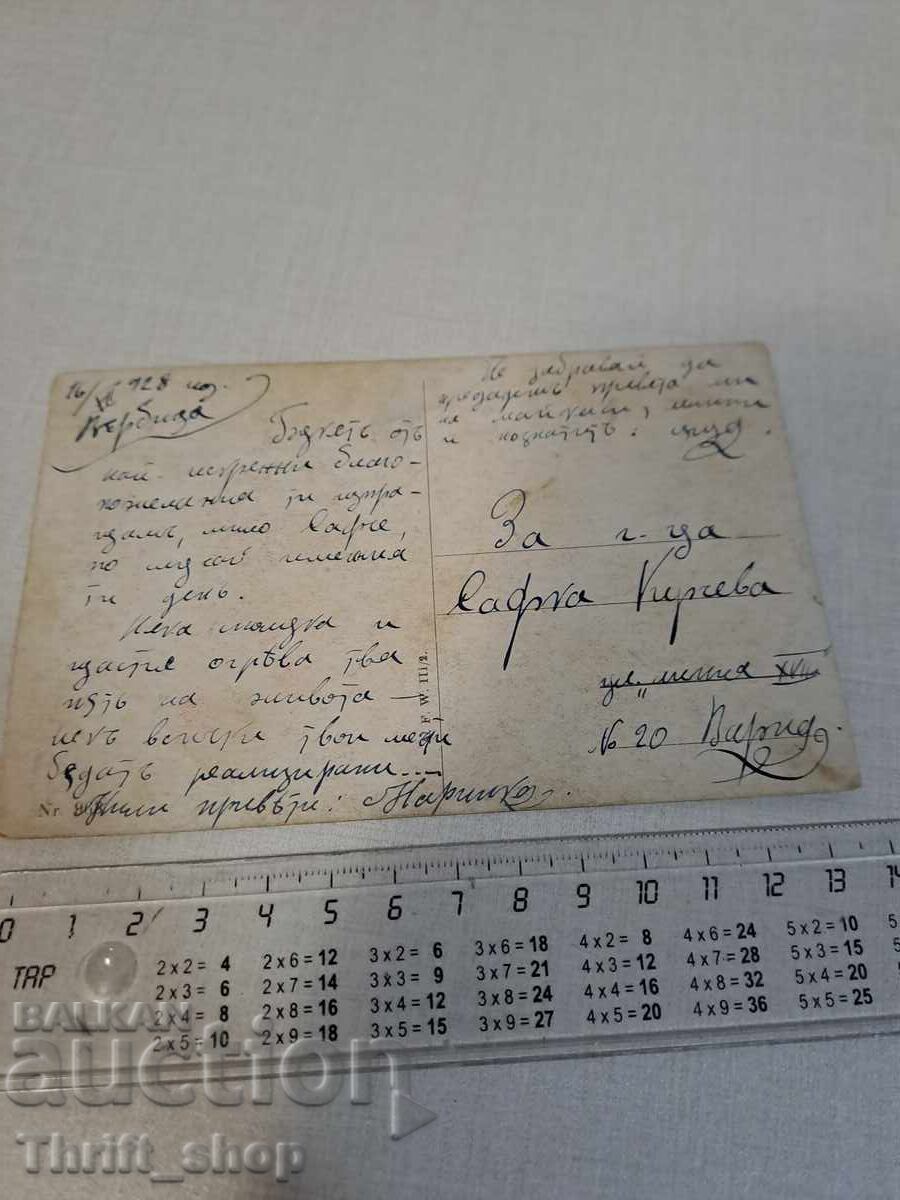 16/ 928 год.
Вербица
Букетъ отъ
най-искренни благо-
пожелания ти изпра-
щамъ, мило Сафче,
по случай именния
ти день.
Нека младка и
щастие огрѣва тва
пѫть на живота —
нека всички твои мечти
бѫдатъ реализирани...
Мили привѣти: Маринка.
Nr.
F. W. III/2.
Не забравай да
предадешъ привета ми
на майка ти,
и познатитѣ.
За г-ца
Сафка Кирчева
ул. XVIII
№ 20 Варна
0 1 2 3 4 5 6 7 8 9 10 11 12 13 14
TAP
2 x 2 = 4 2 x 6 = 12 3 x 2 = 6 3 x 6 = 18 4 x 2 = 8 4 x 6 = 24 5 x 2 = 10
2 x 3 = 6 2 x 7 = 14 3 x 3 = 9 3 x 7 = 21 4 x 3 = 12 4 x 7 = 28 5 x 3 = 15
2 x 4 = 8 2 x 8 = 16 3 x 4 = 12 3 x 8 = 24 4 x 4 = 16 4 x 8 = 32 5 x 4 = 20
2 x 5 = 10 2 x 9 = 18 3 x 5 = 15 3 x 9 = 27 4 x 5 = 20 4 x 9 = 36 5 x 5 = 25
BALKAN
auction
Thrift_shop